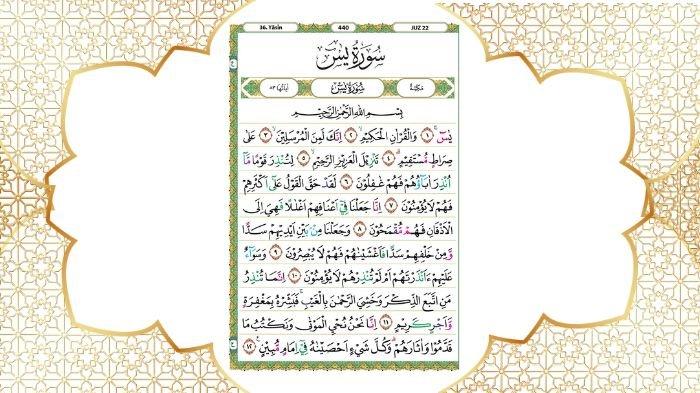 36. Yāsīn 440 JUZ 22
سُوْرَةُ يٰسۤ
مَكِّيَّةٌ سُوْرَةُ يٰسۤ اٰيَاتُهَا ٨٣
بِسْمِ اللّٰهِ الرَّحْمٰنِ الرَّحِيْمِ
يٰسۤ ۚ ١ وَالْقُرْاٰنِ الْحَكِيْمِۙ ٢ اِنَّكَ لَمِنَ الْمُرْسَلِيْنَۙ ٣ عَلٰى
صِرَاطٍ مُّسْتَقِيْمٍۗ ٤ تَنْزِيْلَ الْعَزِيْزِ الرَّحِيْمِۙ ٥ لِتُنْذِرَ قَوْمًا مَّآ
اُنْذِرَ اٰبَاۤؤُهُمْ فَهُمْ غٰفِلُوْنَ ٦ لَقَدْ حَقَّ الْقَوْلُ عَلٰٓى اَكْثَرِهِمْ
فَهُمْ لَا يُؤْمِنُوْنَ ٧ اِنَّا جَعَلْنَا فِيْٓ اَعْنَاقِهِمْ اَغْلٰلًا فَهِيَ اِلَى
الْاَذْقَانِ فَهُمْ مُّقْمَحُوْنَ ٨ وَجَعَلْنَا مِنْۢ بَيْنِ اَيْدِيْهِمْ سَدًّا
وَّمِنْ خَلْفِهِمْ سَدًّا فَاَغْشَيْنٰهُمْ فَهُمْ لَا يُبْصِرُوْنَ ٩ وَسَوَاۤءٌ
عَلَيْهِمْ ءَاَنْذَرْتَهُمْ اَمْ لَمْ تُنْذِرْهُمْ لَا يُؤْمِنُوْنَ ١٠ اِنَّمَا تُنْذِرُ
مَنِ اتَّبَعَ الذِّكْرَ وَخَشِيَ الرَّحْمٰنَ بِالْغَيْبِۚ فَبَشِّرْهُ بِمَغْفِرَةٍ
وَّاَجْرٍ كَرِيْمٍ ١١ اِنَّا نَحْنُ نُحْيِ الْمَوْتٰى وَنَكْتُبُ مَا
قَدَّمُوْا وَاٰثَارَهُمْۗ وَكُلَّ شَيْءٍ اَحْصَيْنٰهُ فِيْٓ اِمَامٍ مُّبِيْنٍ ١٢